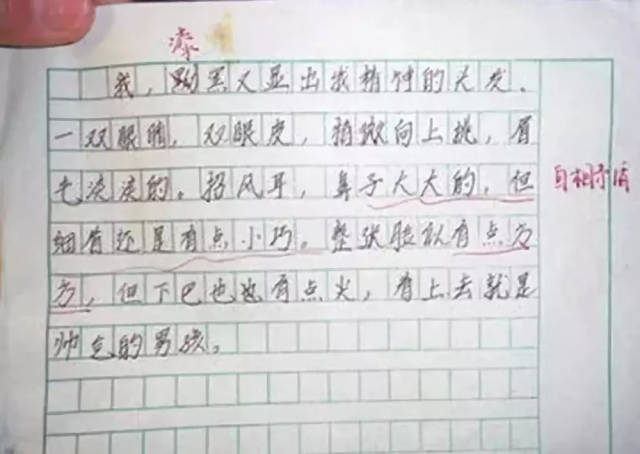 漆
我，黝黑又显出我精神的头发。
一双眼睛，双眼皮，稍微向上挑，眉
毛淡淡的。招风耳，鼻子大大的，但
细看还是有点小巧。整张脸似有点方
方，但下巴也也有点尖，看上去就是
帅气的男孩。
自相矛盾